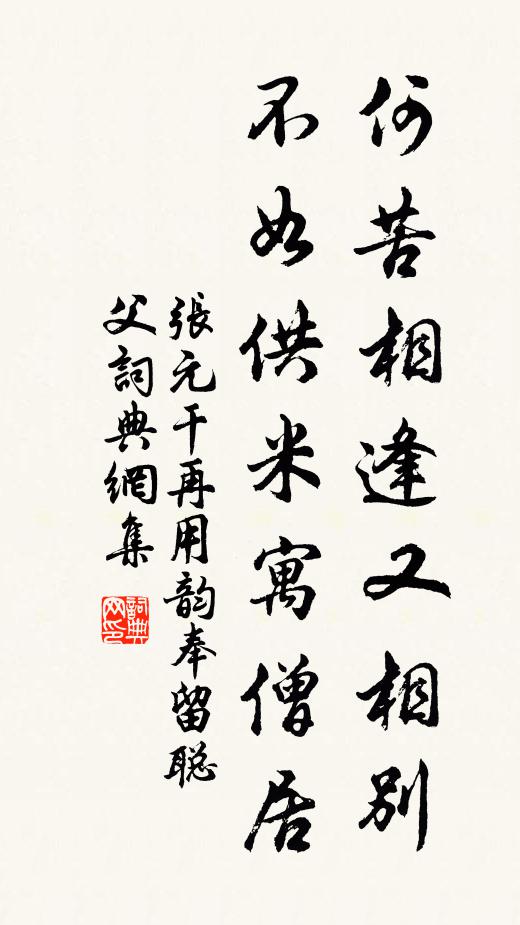 何苦相逢又相別
不如供米寓僧居
張元干再用韵奉留聪
父詞典網集
詞典
网印